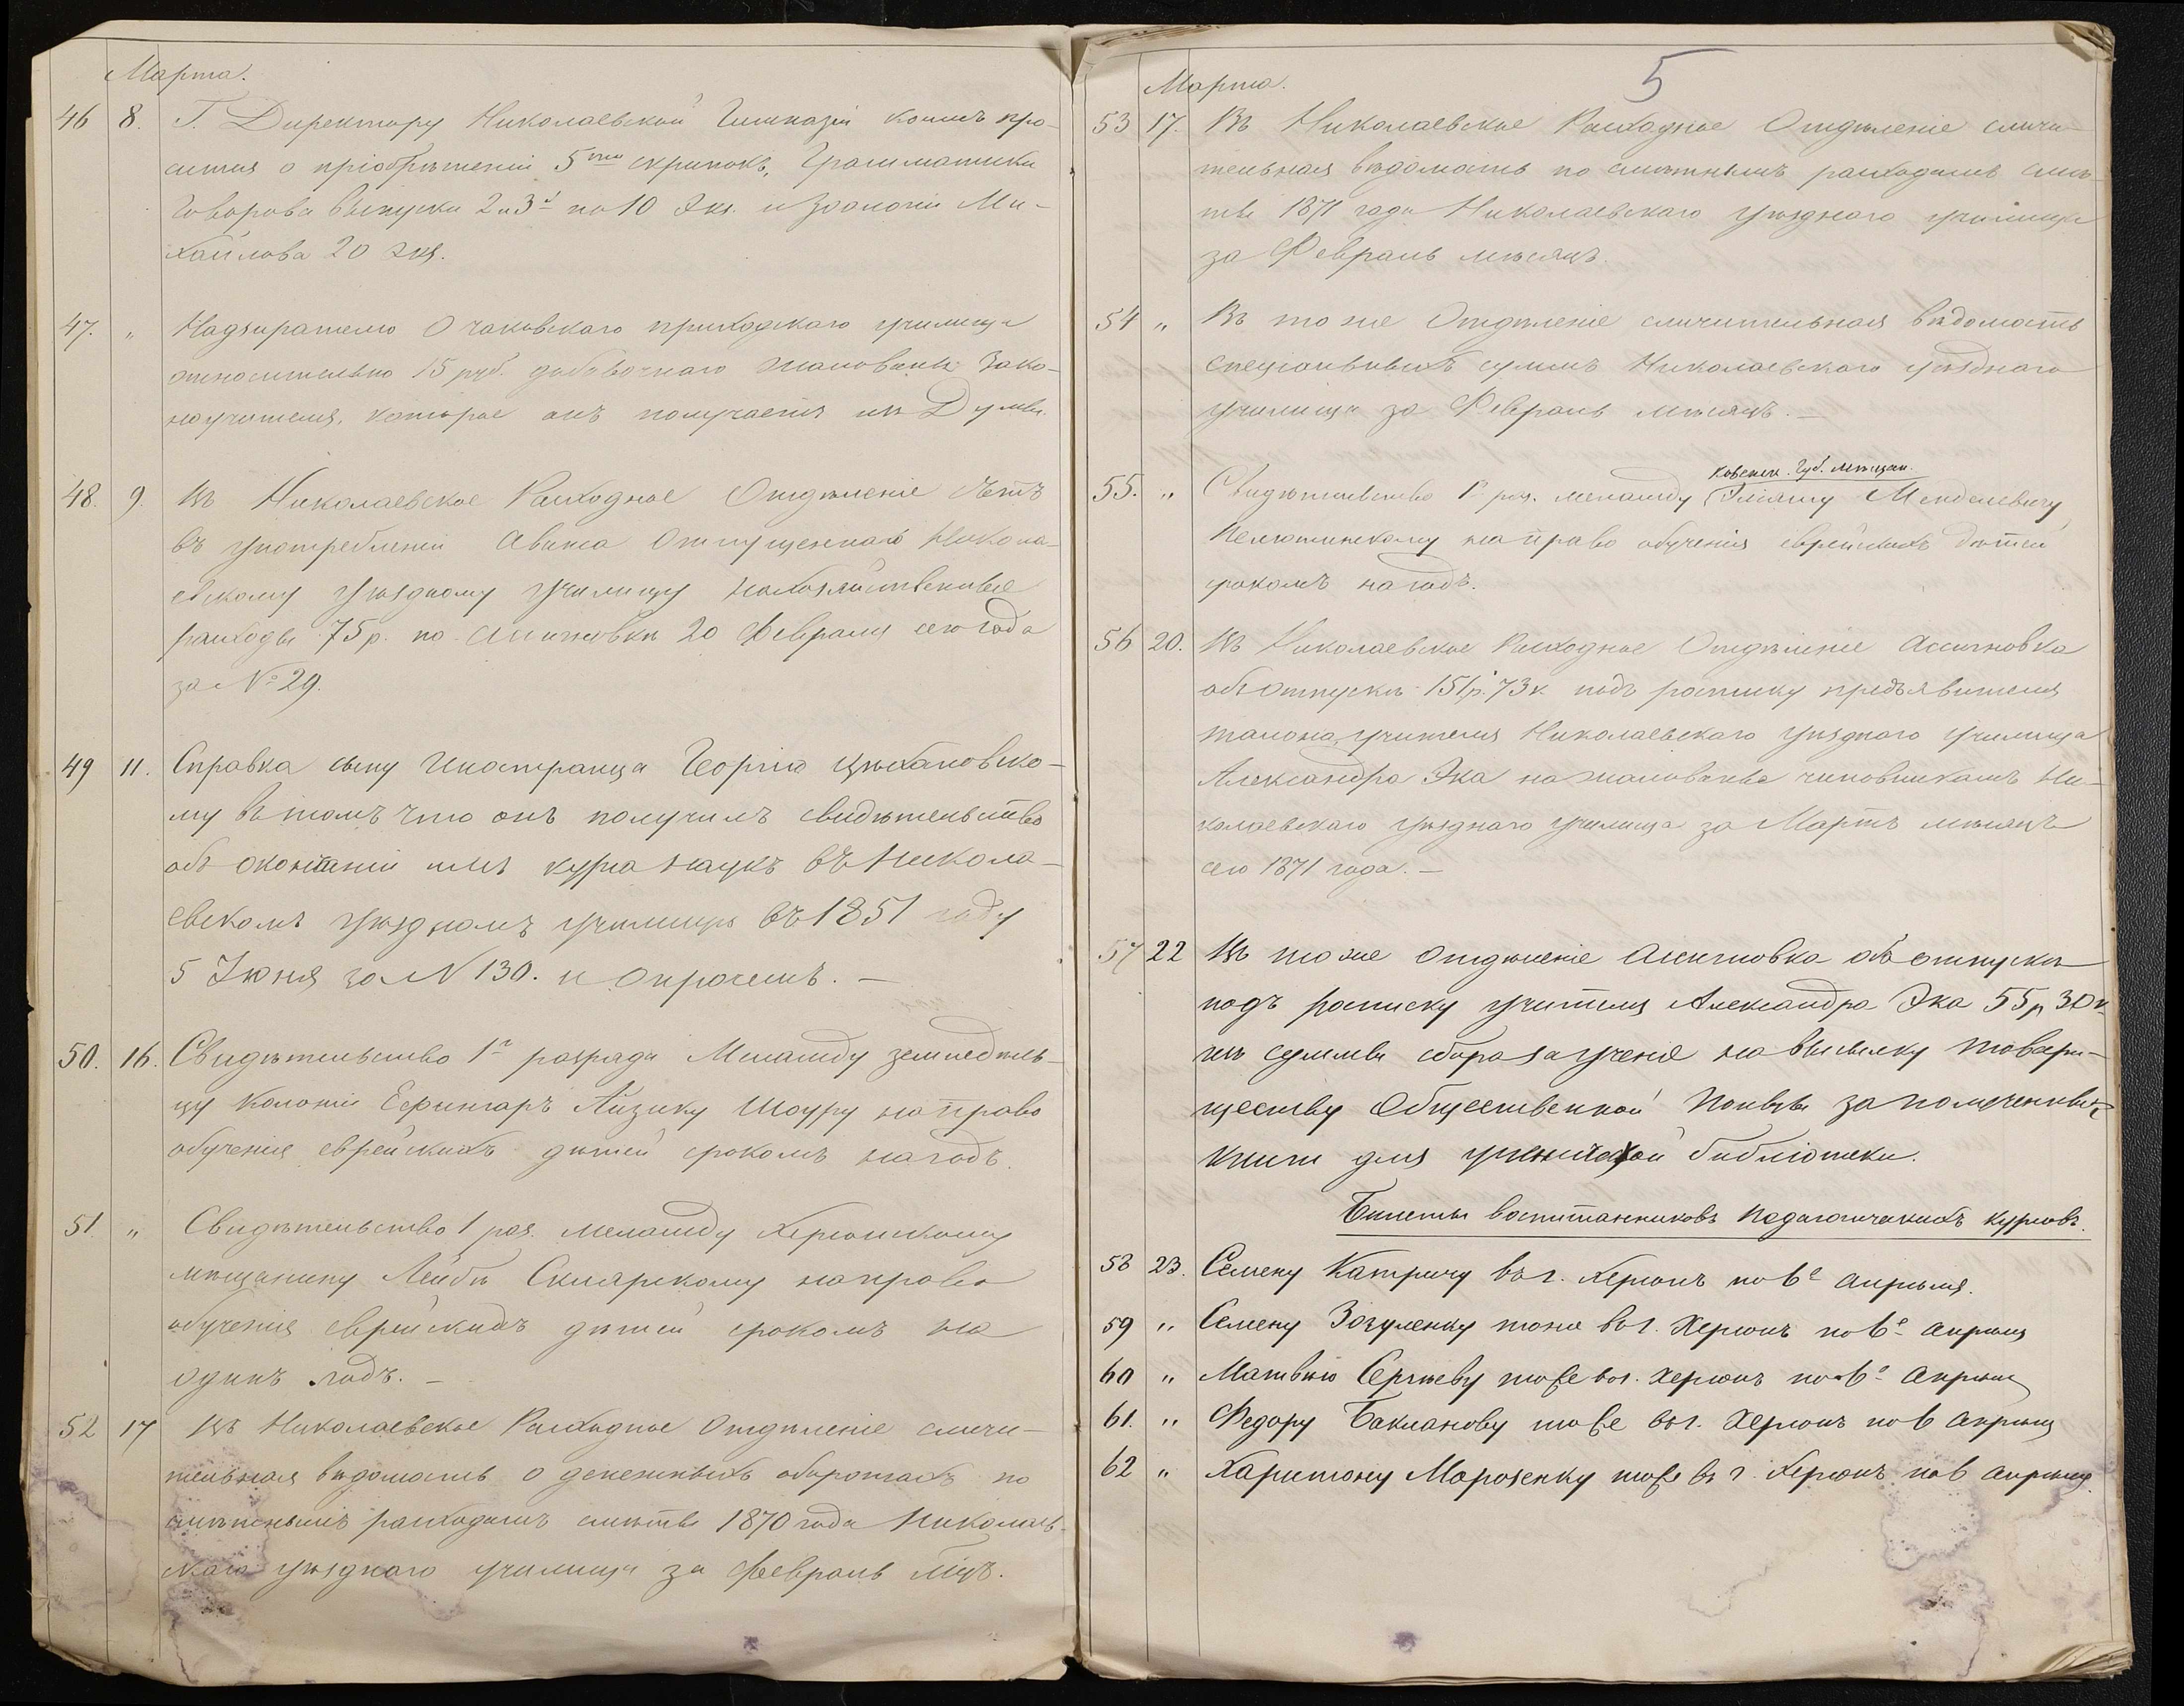 Марта.
46 8. Г. Директору Николаевской Гимназіи коимъ про-
сится о пріобрѣтеніи 5ти скрипокъ, Грамматики
Говорова выпуски 2 и 3й по 10 Экз. и Зоологіи Ми-
хайлова 20 экз.
47. „ Надзирателю Очаковскаго приходскаго училища
относительно 15 руб. добавочнаго жалованья Зако-
ноучителя, которое онъ получаетъ изъ Думы.
48. 9. Въ Николаевское Расходное Отдѣленіе счетъ
въ употребленіи аванса отпущеннаго Никола-
евскому уѣздному училищу на хозяйственные
расходы 75 р. по ассигновкѣ 20 Февраля сего года
за № 29.
49 11. Справка сыну Иностранца Георгію Цыхановско-
му въ томъ что онъ получилъ свидѣтельство
объ окончаніи имъ курса наукъ въ Никола-
евскомъ уѣздномъ училищѣ въ 1851 году
5 Іюня за N 130. и о прочемъ. —
50. 16. Свидѣтельство 1го разряда Меламду земледѣль-
цу колоніи Ефингаръ Айзику Шоуру на право
обученія еврейскихъ дѣтей срокомъ на годъ.
51 „ Свидѣтельство 1 раз. меламду Херсонскому
мѣщанину Лейбѣ Склярскому на право
обученія еврейскихъ дѣтей срокомъ на
одинъ годъ. —
52 17 Въ Николаевское Расходное Отдѣленіе сличи-
тельная вѣдомость о денежныхъ оборотахъ по
смѣтнымъ расходамъ смѣты 1870 года Николаев-
скаго уѣзднаго училища за Февраль мцъ.
5
Марта.
53 17. Въ Николаевское Расходное Отдѣленіе сличи-
тельная вѣдомость по смѣтнымъ расходамъ смѣ-
ты 1871 года Николаевскаго уѣзднаго училища
за Февраль мѣсяцъ.
54 „ Въ тоже Отдѣленіе сличительная вѣдомость
спеціальныхъ суммъ Николаевскаго уѣзднаго
училища за Февраль мѣсяцъ. —
Ковенск. Губ. мѣщан.
55. „ Свидѣтельство 1го раз. меламду Менделевичу
на право обученія еврейскихъ дѣтей
срокомъ на годъ.
56 20. Въ Николаевское Расходное Отдѣленіе Ассигновка
объ отпускѣ 151 р. 73 к. подъ росписку предъявителя
талона, учителя Николаевскаго уѣзднаго училища
Александра Эка на жалованье чиновникамъ Ни-
колаевскаго уѣзднаго училища за Мартъ мѣсяцъ
сего 1871 года. —
57 22 Въ тоже отдѣленіе ассигновка объ отпускѣ
подъ росписку учителя Александра Эка 55 р 30 к
изъ суммы сбора за ученіе на высылку товари-
ществу Общественной Пользы за полученныя
книги для ученической библіотеки.
Билеты воспитанниковъ Педагогическихъ курсовъ.
58 23. Семену Катричу въ г. Херсонъ по 6е апрѣля.
59 „ Семену Зогуленку тоже въ г. Херсонъ по 6е апрѣля
60 „ Матвѣю Сергѣеву тоже въ г. Херсонъ по 6е апрѣля
61. „ Федору Бакланову тоже въ г. Херсонъ по 6 апрѣля
62 „ Харитону Морозенку тоже въ г. Херсонъ по 6 апрѣля.